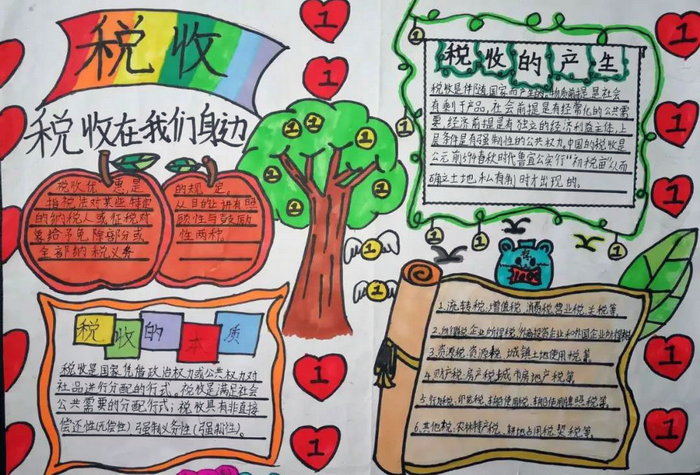 税收
税收在我们身边
税收优惠是
指税法对某些特定
的纳税人或征税对
象给予免除部分或
全部纳税义务
的规定。
从目的上讲有照
顾性与鼓励
性两种。
税收的本质
税收是国家凭借政治权力或公共权力对
社品进行分配的行式。税收是满足社会
公共需要的分配行式；税收具有非直接
偿还性(无偿性)强制义务性(强制性)。
税收的产生
税收是伴随国家而产生的。物质前提是社会
有剩于产品，社会前提是有经常化的公共需
要，经济前提是有独立的经济利益主体，上
层条件是有强制性的公共权力。中国的税收是
公元前594春秋时代鲁宣公实行“初税亩”从而
确立土地私有制时才出现的。
1.流转税：增值税 消费税 营业税 关税等
2.所得税：企业所得税，外商投资企业和外国企业所得税
3.资源税：资源税，城镇土地使用税等
4.财产税：房产税 城市房地产税等
5.行为税：印花税 车船使用税，车船使用牌照税等。
6.其他税：农林特产税，耕地占用税 契税等。
1
1
1
1
1
1
1
1